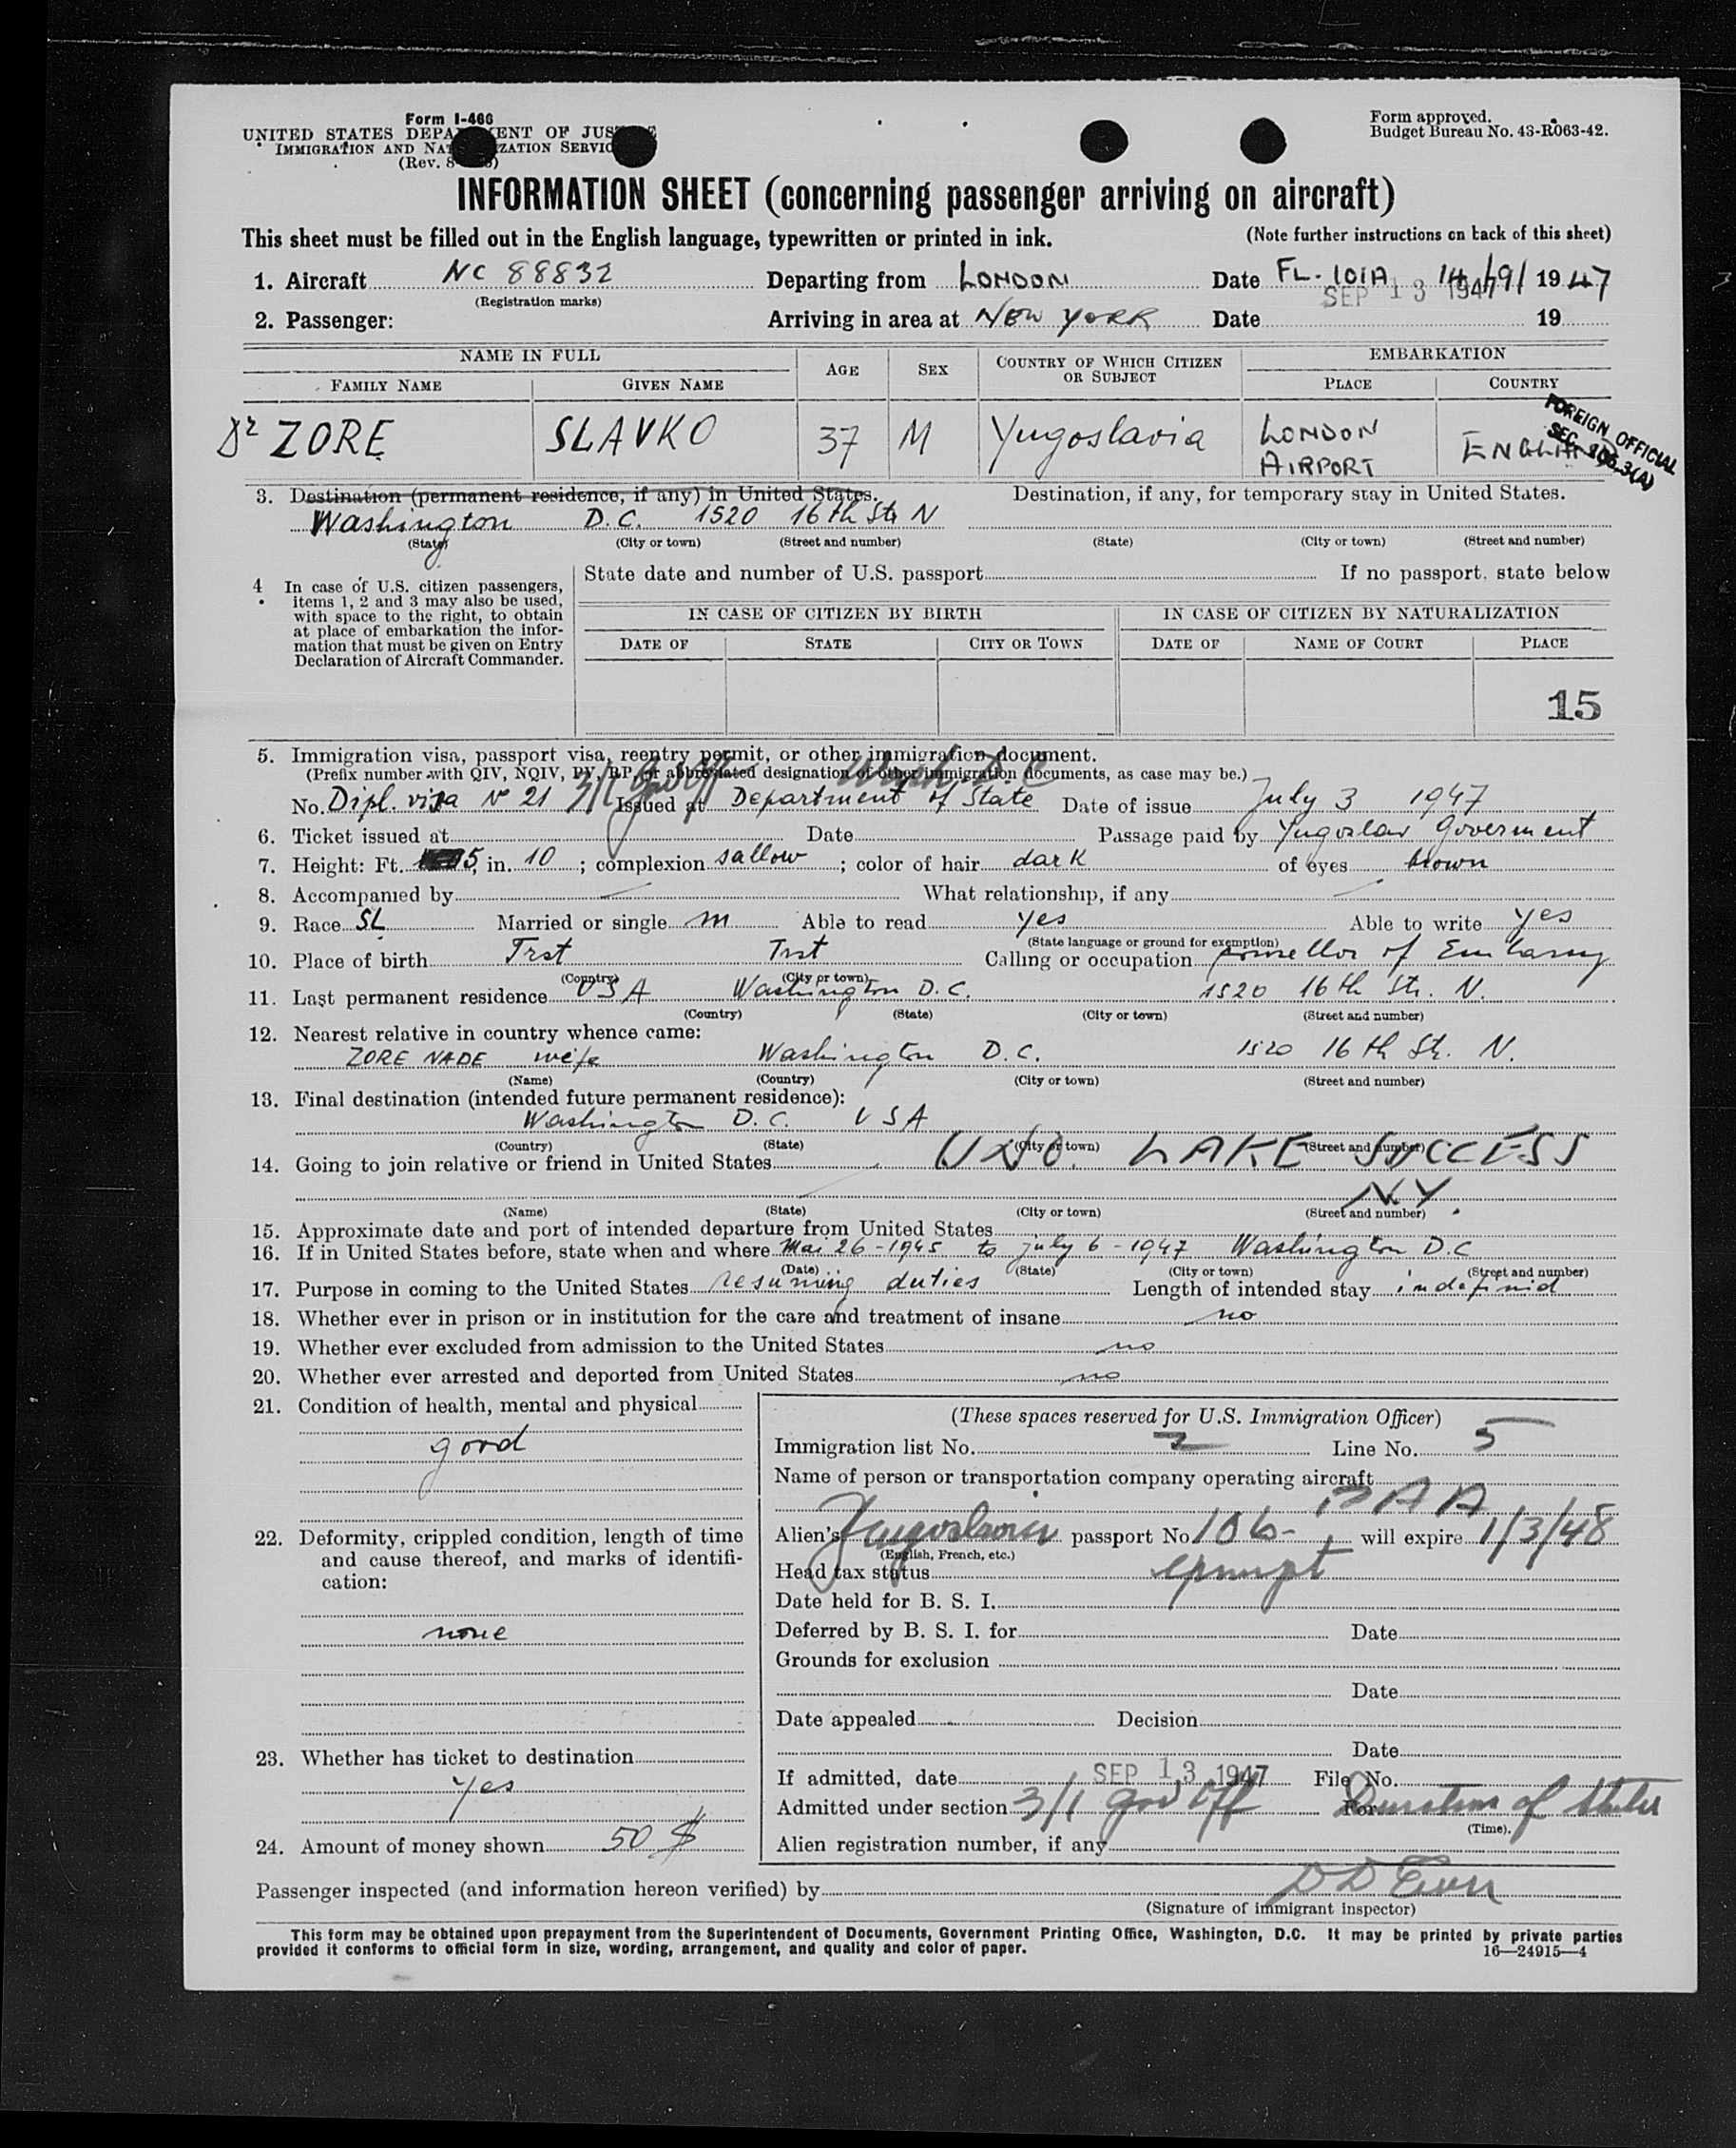 Form I-466
UNITED STATES DEPA ENT OF JUS E
IMMIGRATION AND NAT ZATION SERVIC
(Rev. 8 )
Form approved.
Budget Bureau No. 43-R063-42.
INFORMATION SHEET (concerning passenger arriving on aircraft)
This sheet must be filled out in the English language, typewritten or printed in ink. (Note further instructions on back of this sheet)
1. Aircraft NC 88832 Departing from LONDON Date FL-101A 14/9/ 1947
(Registration marks) SEP 13 1947
2. Passenger: Arriving in area at NEW YORK Date 19
NAME IN FULL AGE SEX COUNTRY OF WHICH CITIZEN OR SUBJECT EMBARKATION
FAMILY NAME GIVEN NAME PLACE COUNTRY
Dr ZORE SLAVKO 37 M Yugoslavia LONDON AIRPORT ENGLAND
FOREIGN OFFICIAL
SEC. 3(A)
3. Destination (permanent residence, if any) in United States. Destination, if any, for temporary stay in United States.
Washington D.C. 1520 16th Str N
(State) (City or town) (Street and number) (State) (City or town) (Street and number)
4. In case of U.S. citizen passengers, items 1, 2 and 3 may also be used, with space to the right, to obtain at place of embarkation the information that must be given on Entry Declaration of Aircraft Commander.
State date and number of U.S. passport If no passport, state below
IN CASE OF CITIZEN BY BIRTH IN CASE OF CITIZEN BY NATURALIZATION
DATE OF STATE CITY OR TOWN DATE OF NAME OF COURT PLACE
15
5. Immigration visa, passport visa, reentry permit, or other immigration document.
(Prefix number with QIV, NQIV, PV, RP, or abbreviated designation of other immigration documents, as case may be.)
3/1 Gov Off Wash. D.C
No. Dipl. visa No 21 Issued at Department of State Date of issue July 3 1947
6. Ticket issued at Date Passage paid by Yugoslav Goverment
7. Height: Ft. 5, in. 10; complexion sallow; color of hair dark of eyes brown
8. Accompanied by What relationship, if any
9. Race SL Married or single m Able to read yes Able to write yes
(State language or ground for exemption)
10. Place of birth Trst Trst Calling or occupation of Embassy
(Country) (City or town)
11. Last permanent residence USA Washington D.C. 1520 16th Str. N.
(Country) (State) (City or town) (Street and number)
12. Nearest relative in country whence came:
ZORE NADE wife Washington D.C. 1520 16th Str. N.
(Name) (Country) (City or town) (Street and number)
13. Final destination (intended future permanent residence):
Washington D.C. USA
(Country) (State) (City or town) (Street and number)
14. Going to join relative or friend in United States UNO. LAKE SUCCESS
N.Y.
(Name) (State) (City or town) (Street and number)
15. Approximate date and port of intended departure from United States
16. If in United States before, state when and where Mai 26-1945 to july 6-1947 Washington D.C
(Date) (State) (City or town) (Street and number)
17. Purpose in coming to the United States resuming duties Length of intended stay indefinid
18. Whether ever in prison or in institution for the care and treatment of insane no
19. Whether ever excluded from admission to the United States no
20. Whether ever arrested and deported from United States no
21. Condition of health, mental and physical
good
22. Deformity, crippled condition, length of time
and cause thereof, and marks of identifi-
cation:
none
23. Whether has ticket to destination
yes
24. Amount of money shown 50 $
(These spaces reserved for U.S. Immigration Officer)
Immigration list No. 2 Line No. 5
Name of person or transportation company operating aircraft
PAA
Alien's Yugoslavia passport No. 106- will expire 1/3/48
(English, French, etc.)
Head tax status exempt
Date held for B. S. I.
Deferred by B. S. I. for Date
Grounds for exclusion
Date
Date appealed Decision
Date
If admitted, date SEP 13 1947 File No.
Admitted under section 3/1 gov Off For Duration of Status
(Time).
Alien registration number, if any
Passenger inspected (and information hereon verified) by
(Signature of immigrant inspector)
This form may be obtained upon prepayment from the Superintendent of Documents, Government Printing Office, Washington, D.C. It may be printed by private parties
provided it conforms to official form in size, wording, arrangement, and quality and color of paper. 16—24915—4